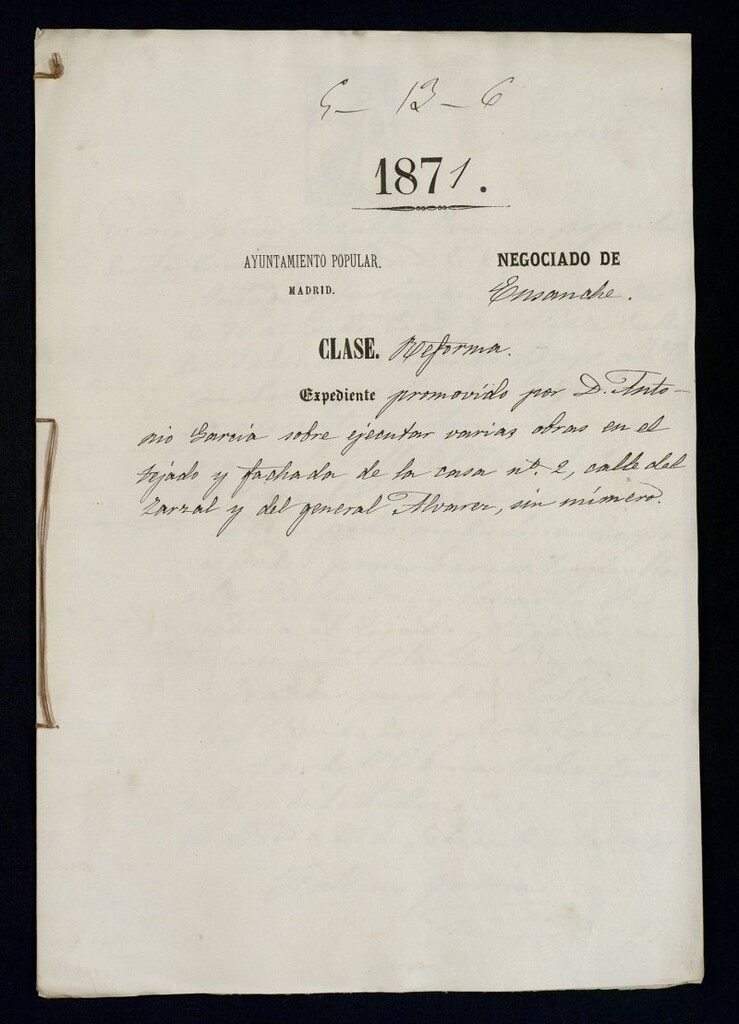 5- 13 - 6
1871.
AYUNTAMIENTO POPULAR.
MADRID.
NEGOCIADO DE
Ensanche.
CLASE. Reforma.
Expediente promovido por D. Anto-
nio García sobre ejecutar varias obras en el
tejado y fachada de la casa nº. 2, calle del
Zarzal y del general Alvarez, sin número.